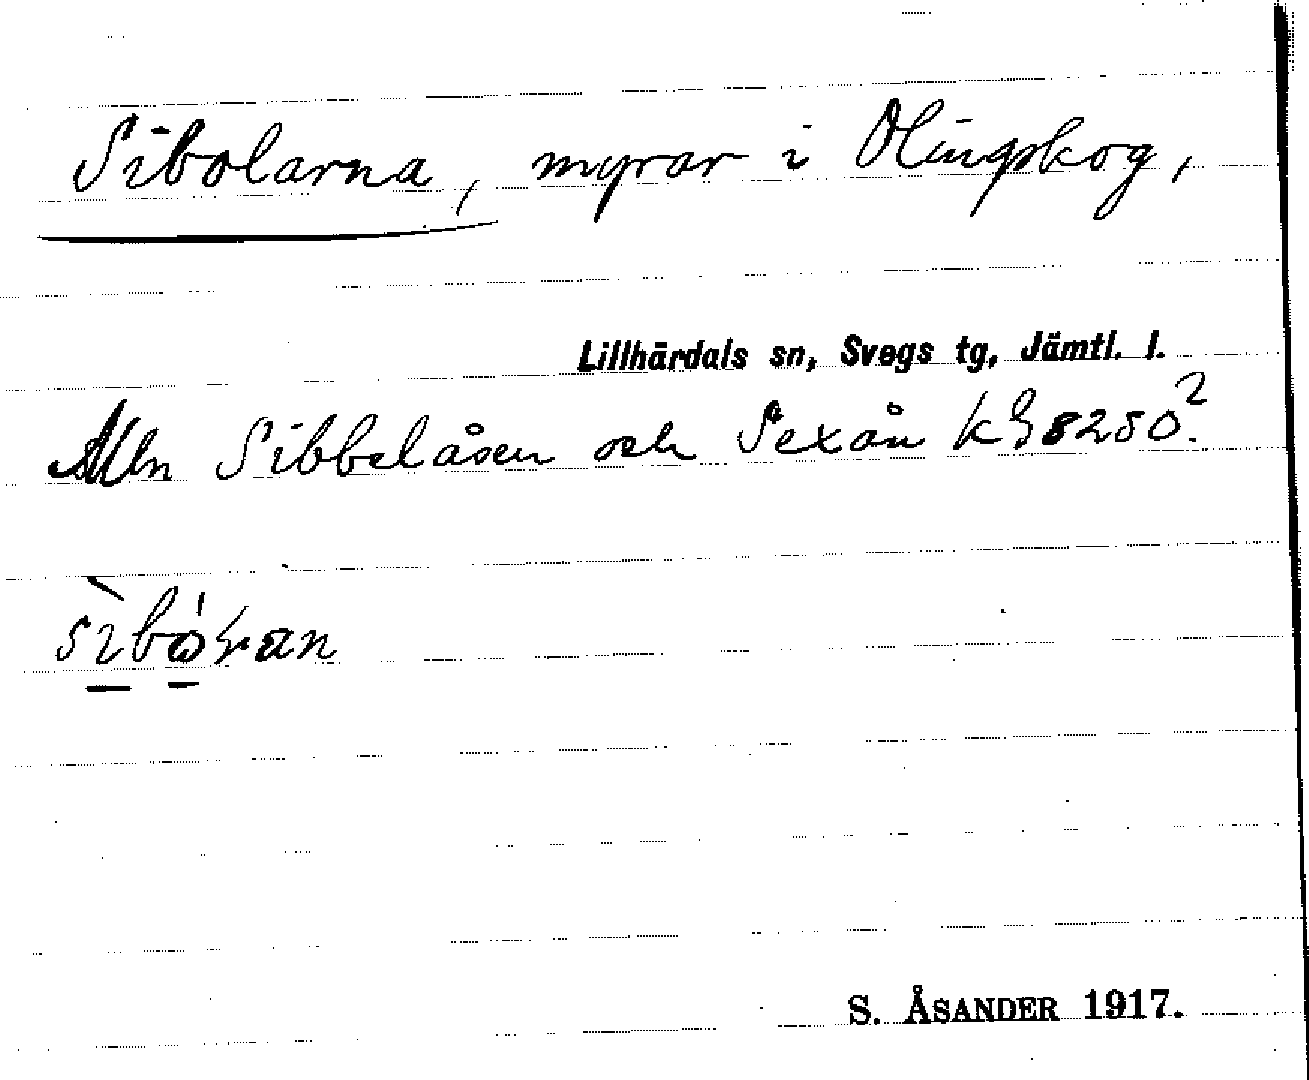 Sibolarna, myrar i Olingskog,
Lillhärdals sn, Svegs tg, Jämtl. l.
Mln Sibbelåsen och Sexån 8250².
S. ÅSANDER 1917.